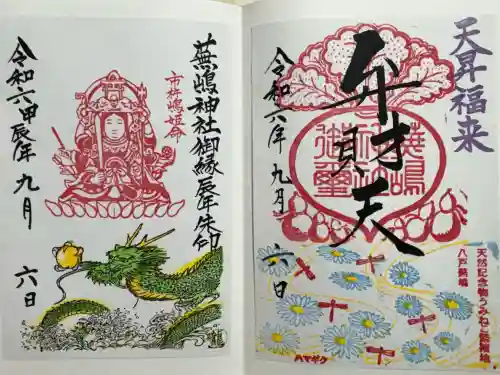 蕪嶋神社御縁辰年朱印
市杵嶋姫命
令和六甲辰年 九月 六日
天昇福来
弁財天
令和六年 九月 六日
天然記念物うみねこ繁殖地
八戸蕪嶋
ハマギク